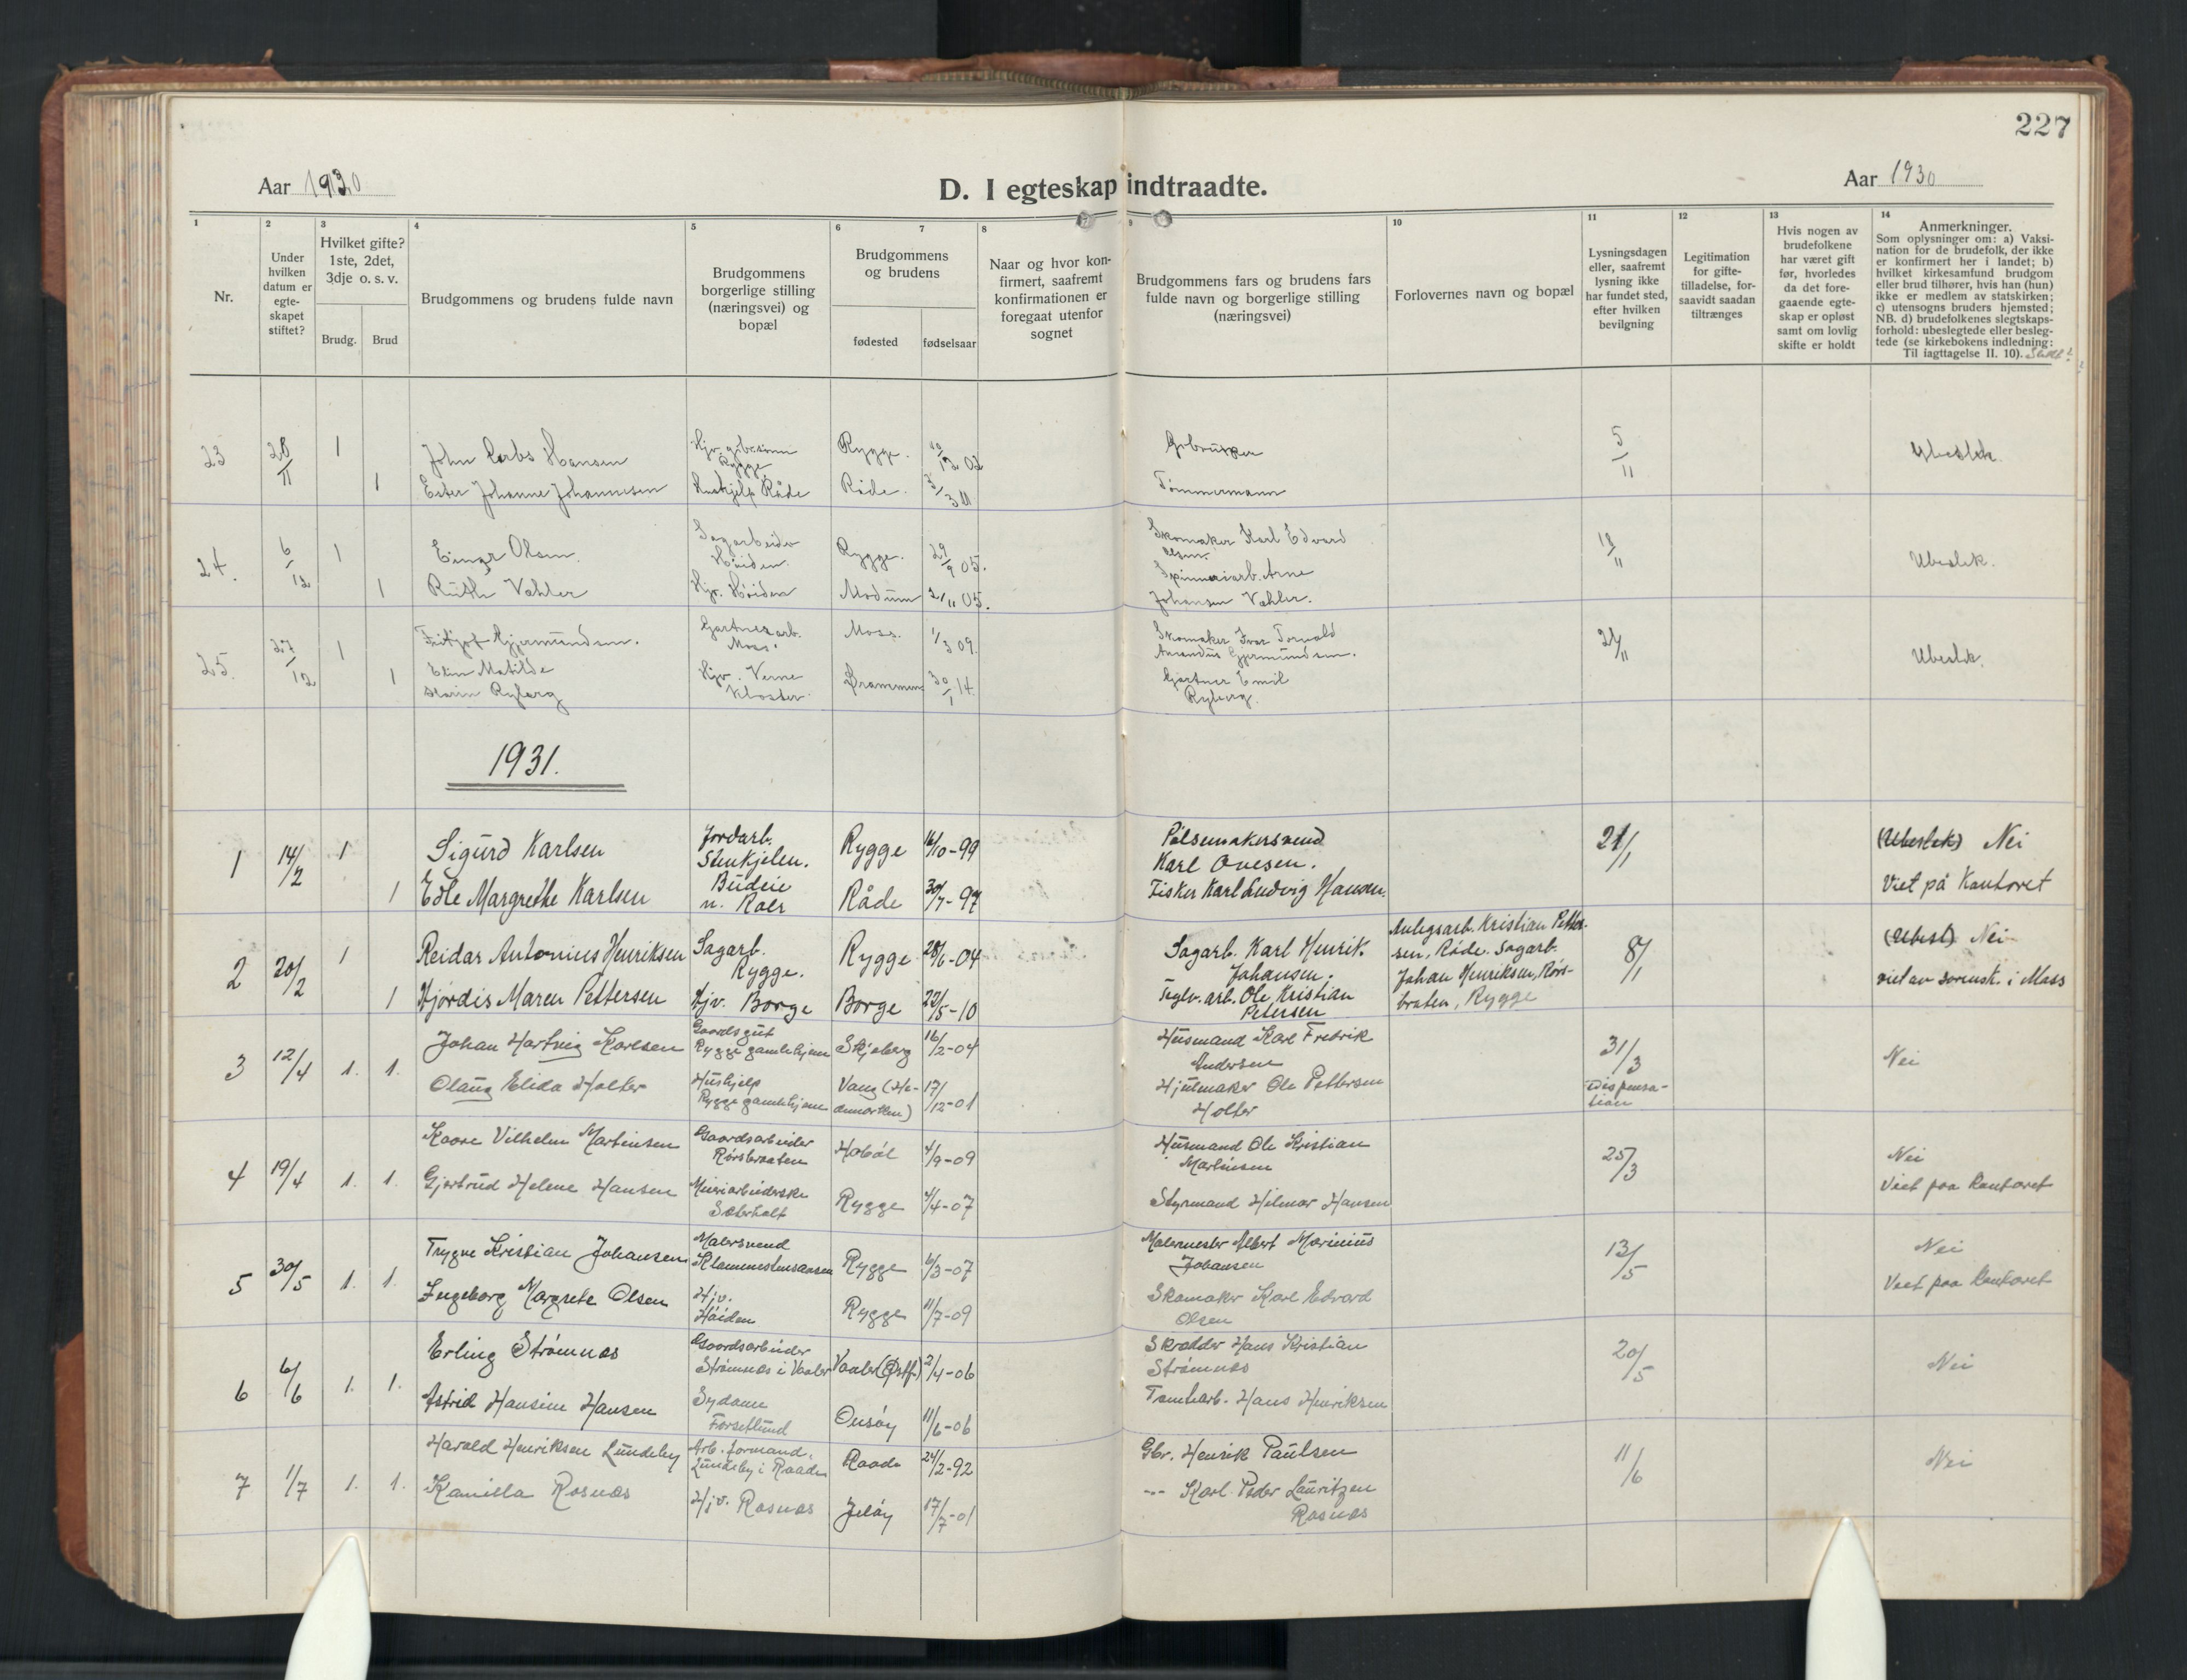 227
Aar 1930
D. I egteskap indtraadte.
Aar 1930
1 2 3 4 5 6 7 8 9 10 11 12 13 14
Nr.
Under hvilken datum er egte-skapet stiftet?
Hvilket gifte? 1ste, 2det, 3dje o. s. v.
Brudg. Brud
Brudgommens og brudens fulde navn
Brudgommens borgerlige stilling (næringsvei) og bopæl
Brudgommens og brudens
fødested fødselsaar
Naar og hvor kon-firmert, saafremt konfirmationen er foregaat utenfor sognet
Brudgommens fars og brudens fars fulde navn og borgerlige stilling (næringsvei)
Forlovernes navn og bopæl
Lysningsdagen eller, saafremt lysning ikke har fundet sted, efter hvilken bevilgning
Legitimation for gifte-tilladelse, for-saavidt saadan tiltrænges
Hvis nogen av brudefolkene har været gift før, hvorledes da det fore-gaaende egte-skap er opløst samt om lovlig skifte er holdt
Anmerkninger.
Som oplysninger om: a) Vaksi-nation for de brudefolk, der ikke er konfirmert her i landet; b) hvilket kirkesamfund brudgom eller brud tilhører, hvis han (hun) ikke er medlem av statskirken; c) utensogns bruders hjemsted; NB. d) brudefolkenes slegtskaps-forhold: ubeslegtede eller besleg-tede (se kirkebokens indledning: Til iagttagelse II. 10).
23 28/11 1 John Hansen Rygge Rygge. 02 Gbruker 5/11 Ubeslek.
1 Ester Johanne Johannesen Råde Råde. 3/3 11 Tømmermann
24. 6/12 1 Einar Olsen Sagarbeider Høiden. Rygge. 29/9 05. Skomaker Karl Edvard Olsen. Ubeslek.
1 Ruth Vahler Hjv. Høiden Modum 2/11 05. Spinneriarb. Arne Johansen Vahler.
25. 27/12 1 Fritjof Gjermundsen. Gartnerarb. Moss. Moss. 1/3 09. Skomaker Ivar Torvald Amandus Gjermundsen. Ubeslek.
1 Elin Matilde Karin Ryberg Hjv. Verne Kloster Drammen 30/1 14. Gartner Emil Ryberg.
1931.
1 14/2 1 Sigurd Karlsen Jordarb. Rygge 16/10-99 Pølsemakersvend Karl Ovesen. 21/1 (Ubeslek) Nei
1 Edle Margrethe Karlsen Budeie n. Roer Råde 30/7-97 Fisker Karl Ludvig Hansen. Viet på Kontoret
2 20/2 1 Reidar Antonius Henriksen Sagarb. Rygge. Rygge 28/6-04 Sagarb. Karl Henrik Johansen. Anlegsarb. Kristian Petter-sen, Råde. Sagarb. Johan Henriksen, Rørs-braten, Rygge 8/1 (Ubesl) Nei
1 Hjørdis Maren Pettersen Hjv. Borge Borge 22/5-10 Teglv. arb. Ole Kristian Petersen viet av sorensk. i Moss
3 12/4 1. 1. Johan Hartvig Karlsen Gaardsgut Rygge gamlehjem Skjeberg 16/2-04 Husmand Karl Fredrik Andersen 31/3 Dispensa-tion Nei
Olaug Elida Holter Hushjelp Rygge gamlehjem Vang (He-demarken) 17/12-01 Hjulmaker Ole Pettersen Holter
4 19/4 1. 1. Kaare Vilhelm Martinsen Gaardsarbeider Rørsbraaten Hobøl 4/9-09 Husmand Ole Kristian Martinsen 25/3 Nei
Gjertrud Helene Hansen Meieriarbeiderske Sæterholt Rygge 4/4-07 Styrmand Hilmar Hansen Viet paa kontoret
5 30/5 1. 1. Trygve Kristian Johansen Malersvend Rygge 6/3-07 Malermester Albert Marinius Johansen 13/5 Nei
Ingeborg Margrete Olsen Hjv. Høiden Rygge 11/7-09 Skomaker Karl Edvard Olsen Viet paa kontoret
6 6/6 1. 1. Erling Strømnæs Gaardsarbeider Strømnæs i Vaaler Vaaler (Østf.) 2/4-06 Skrædder Hans Kristian Strømnæs 20/5 Nei
Astrid Hansine Hansen Sydame Forsetlund Onsøy 11/6-06 Tomtearb. Hans Henriksen
7 1/7 1. 1. Harald Henriksen Lundeby Arb. formand. Lundeby i Raade Raade 24/2-92 Gbr. Henrik Paulsen 11/6 Nei
Kamilla Rosnæs Hjv. Rosnæs Jeløy 17/7-01 --- Karl Peder Lauritzen Rosnæs